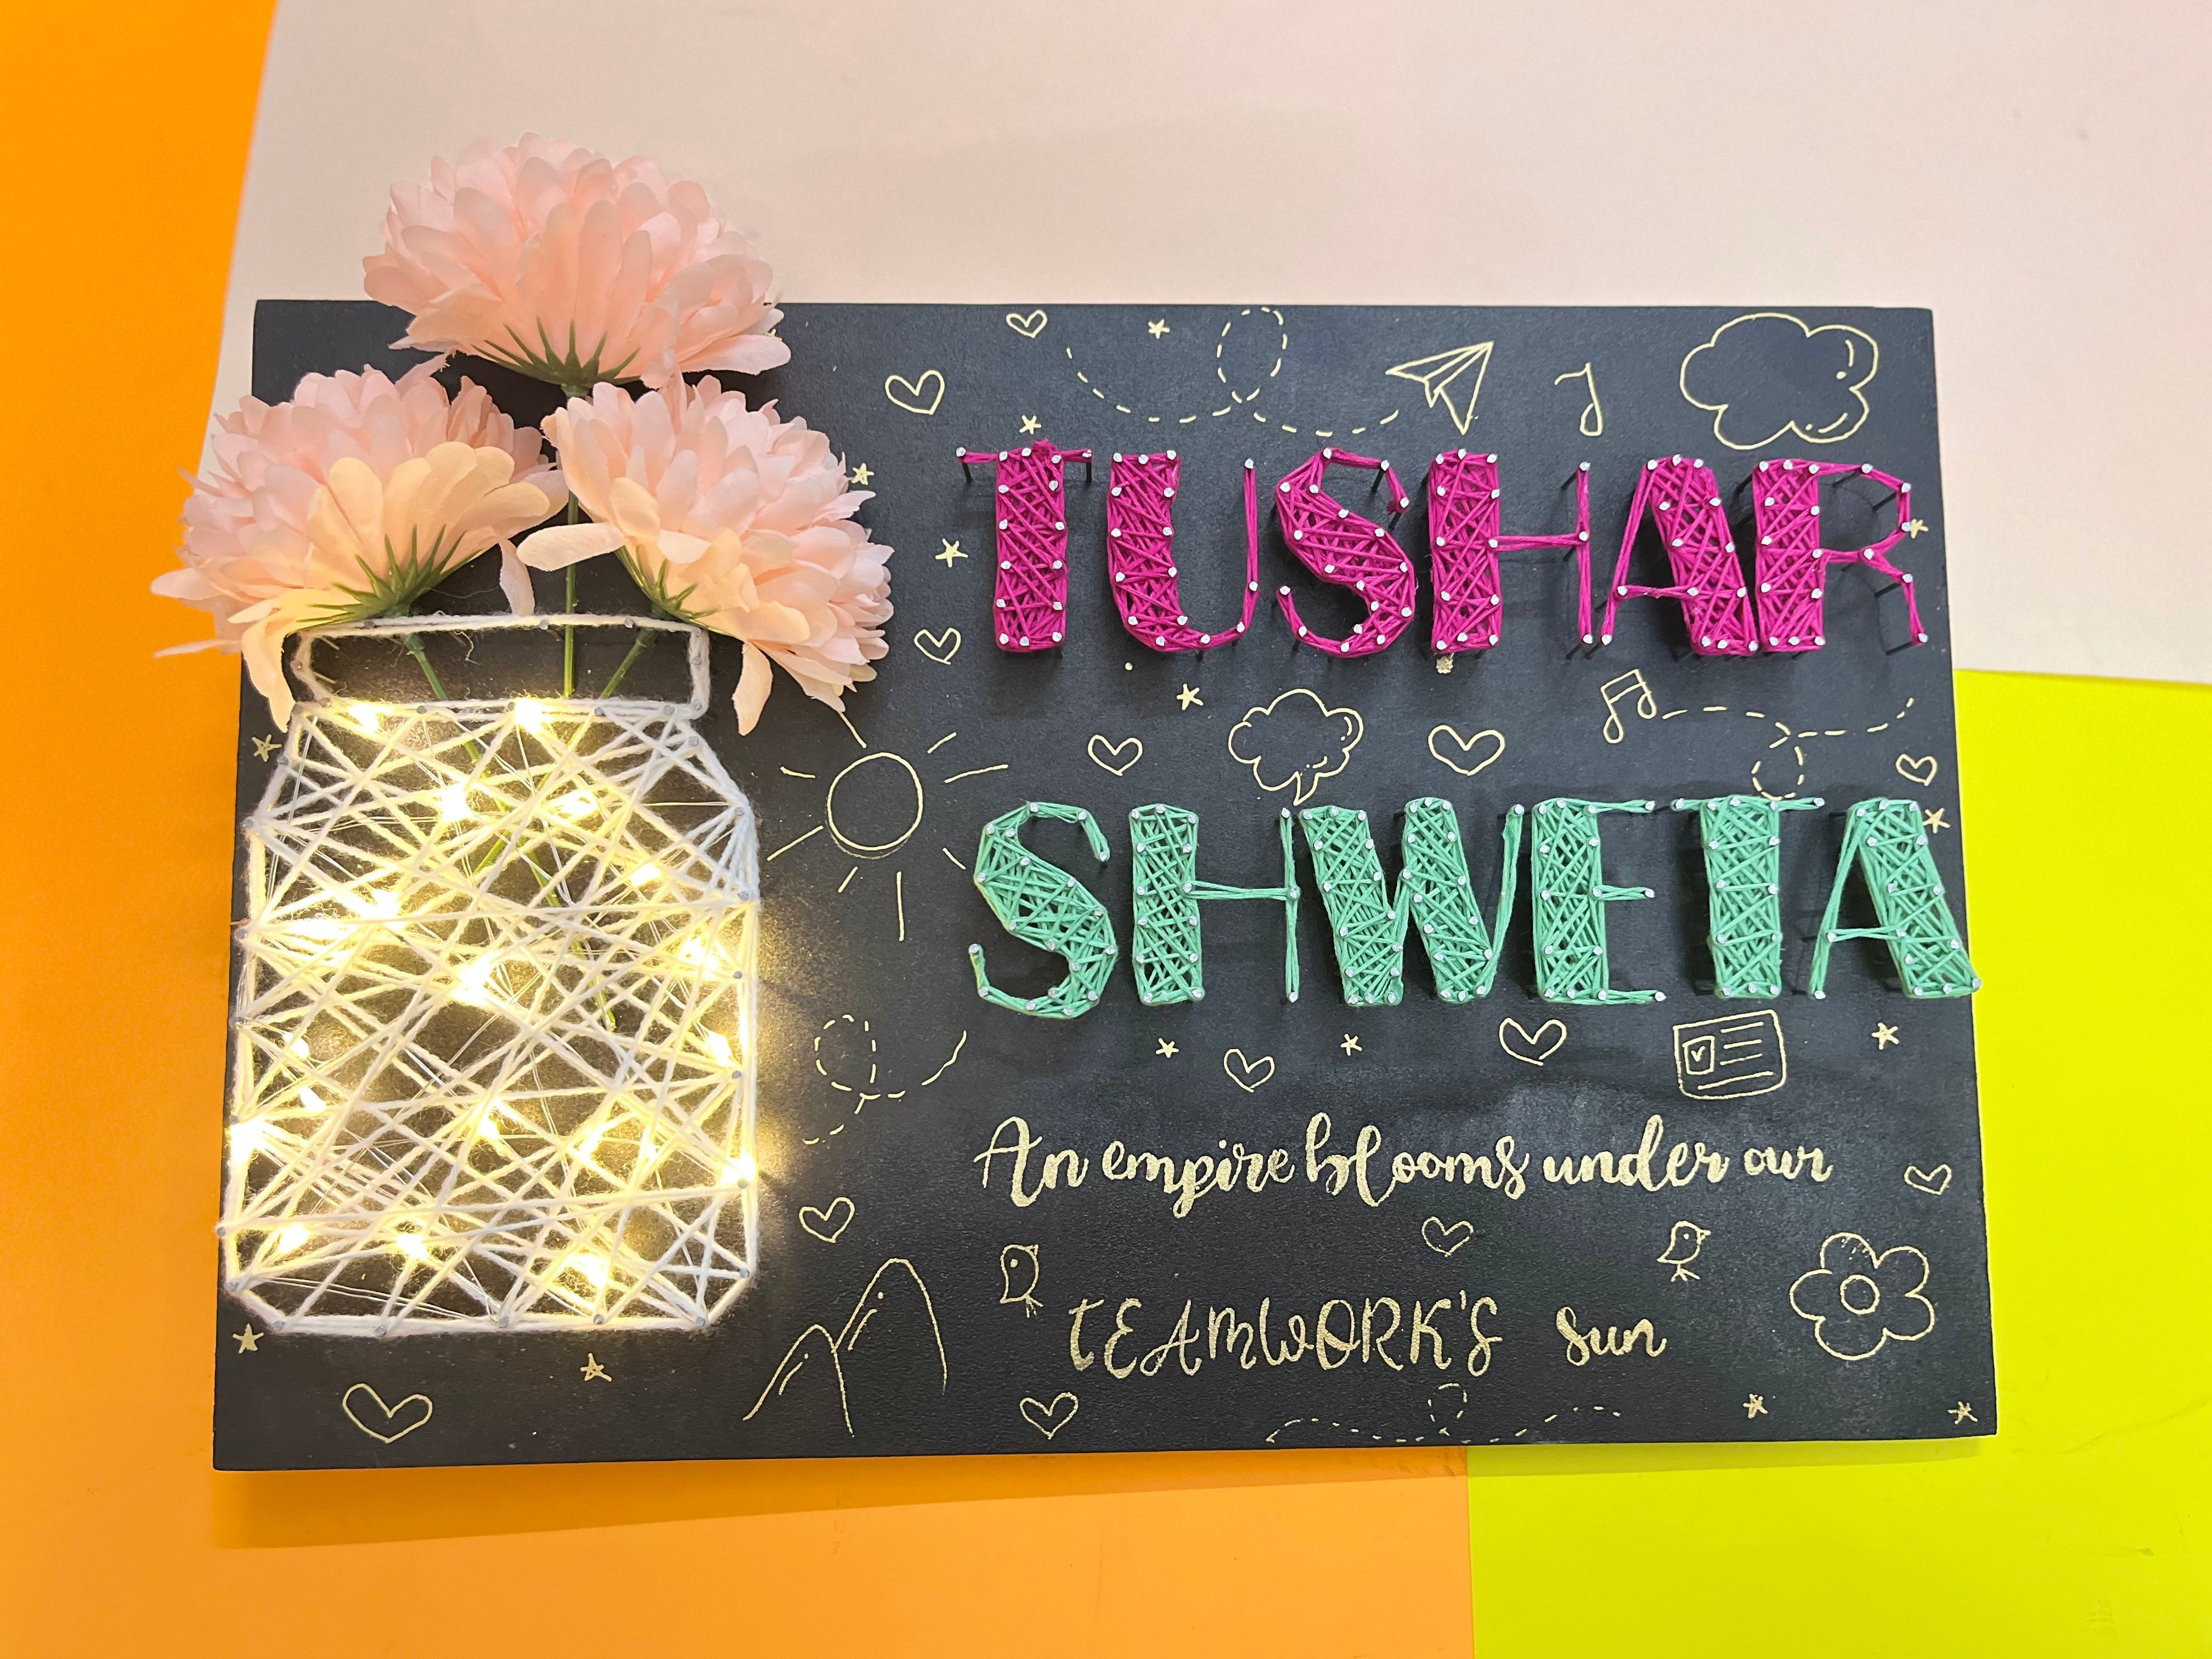 TUSHAR
SHWETA
An empire blooms under our
tEAmWORK'S sun